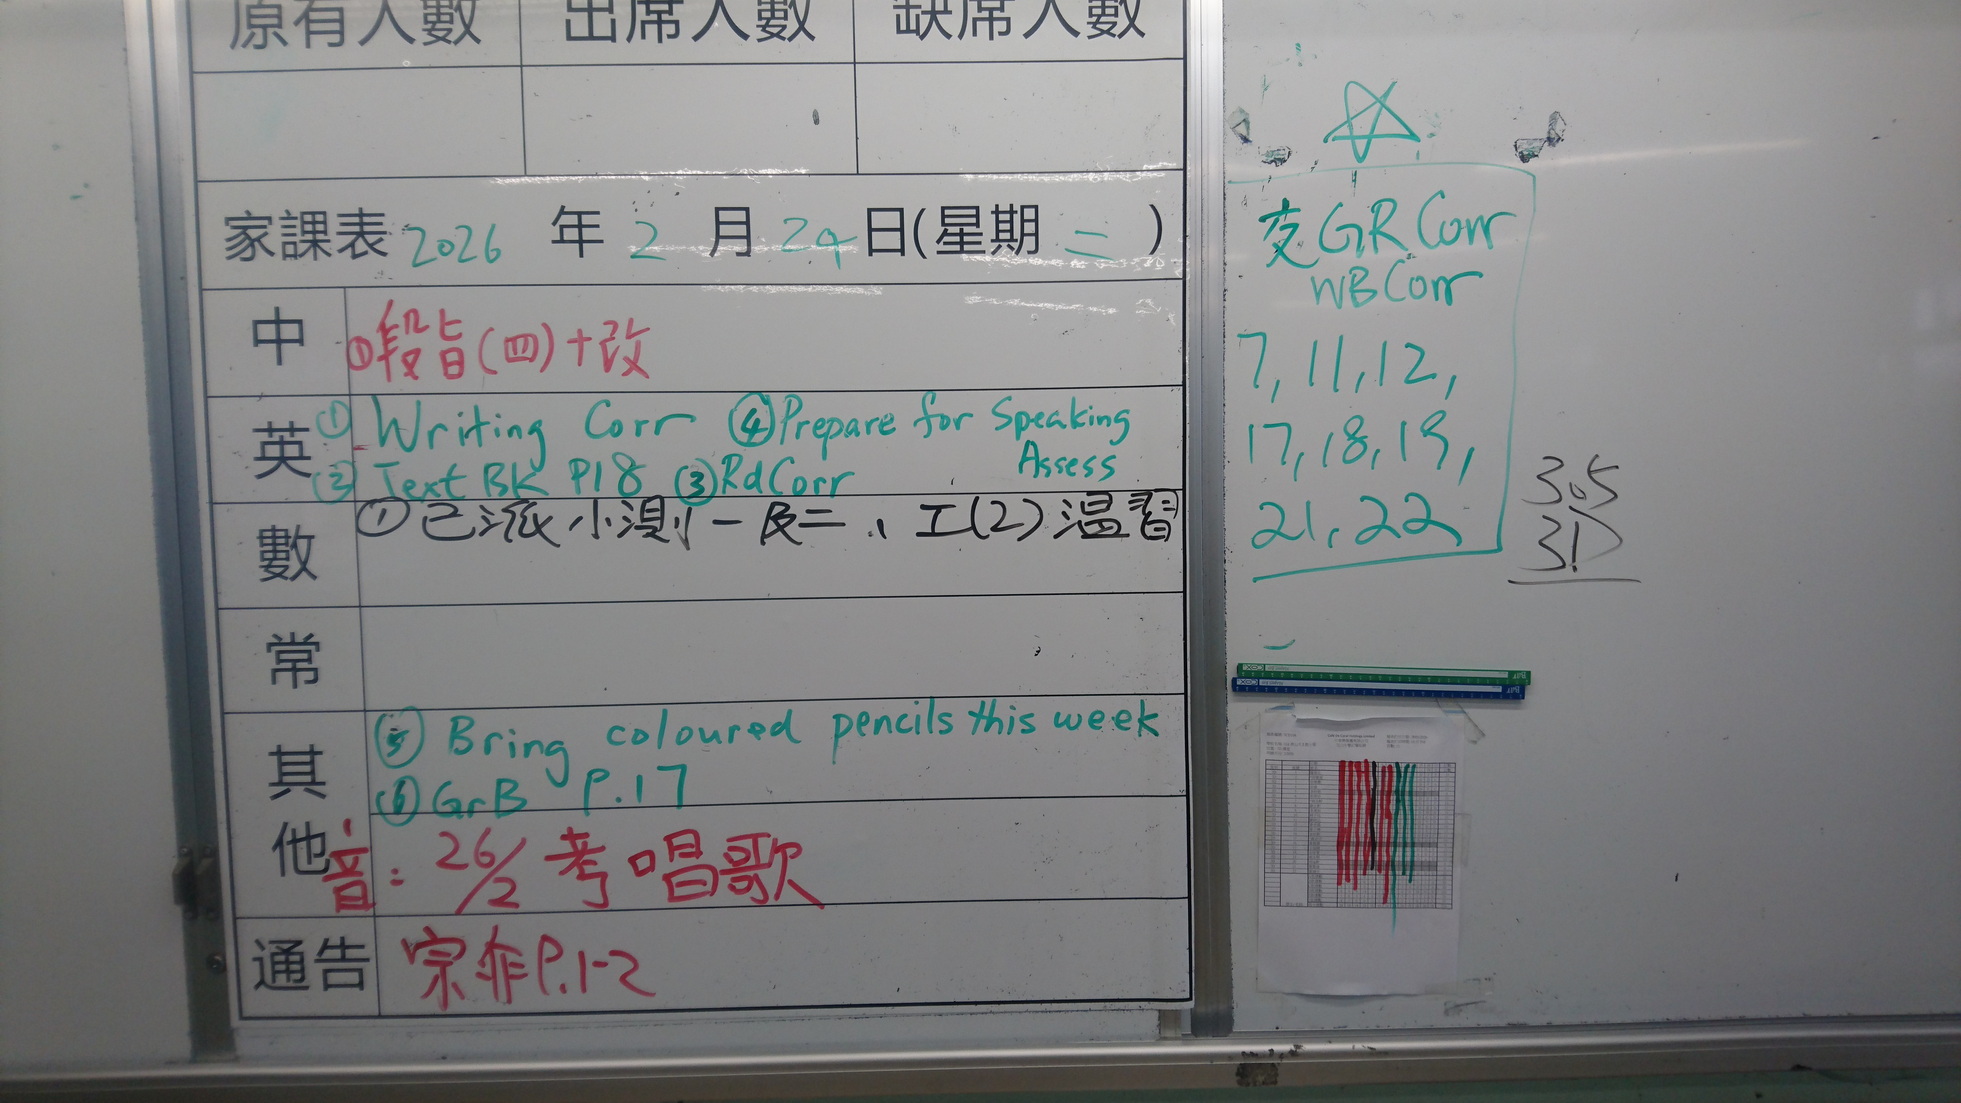 原有人數 出席人數 缺席人數
家課表 2026 年 2 月 24 日(星期 二 )
中 ①段旨(四)+改
英 ① Writing Corr ④Prepare for Speaking Assess
② Text BK P18 ③RdCorr
數 ①已派小測一及二、工(2)温習
常
其他 ⑤ Bring coloured pencils this week
⑥ GrB P.17
音: 26/2 考唱歌
通告 宗 P.1-2
交 GR Corr
WB Corr
7, 11, 12,
17, 18, 19,
21, 22
3.5